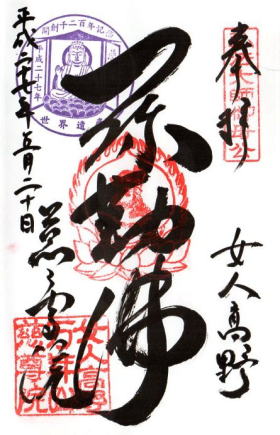 奉拝
女人高野
弥勒佛
慈尊院
平成二十七年五月二十日
開創千二百年記念
平成二十七年
世界遺産
女人高野
慈尊院